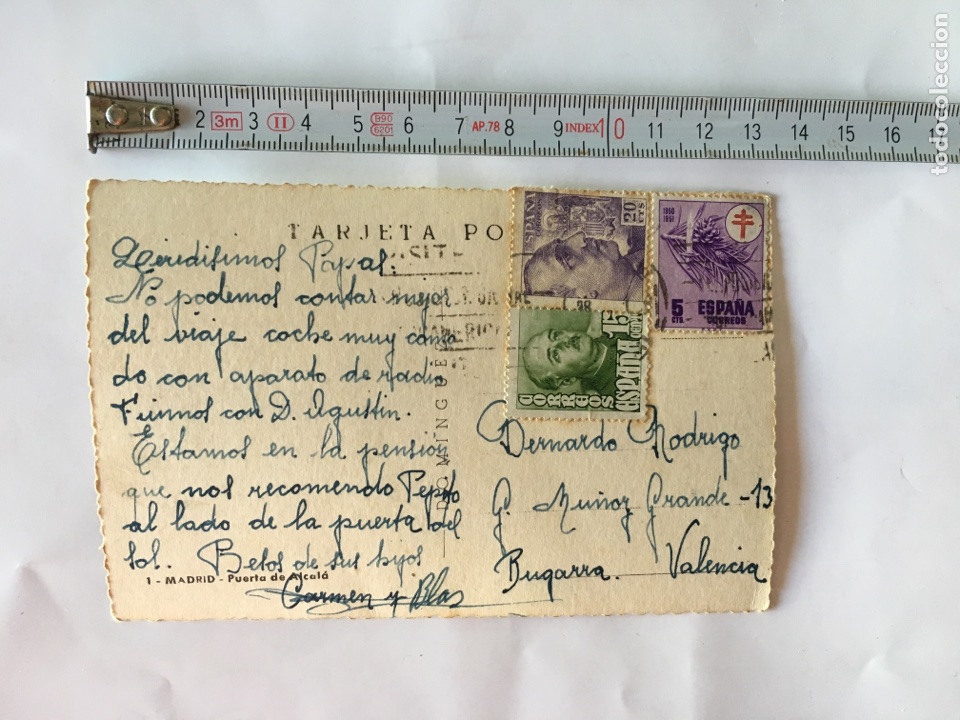 2 3m 3 II 4 5 B90 6201 6 7 AP.78 8 9 INDEX 10 11 12 13 14 15 16
todocoleccion
TARJETA PO
ESPAÑA
20 CTS
1950
1951
5 CTS
ESPAÑA
CORREOS
CORREOS
ESPAÑA
15
DOMINGUEZ
Queridisimos Papas.
No podemos contar mejor
del viaje coche muy como
do con aparato de radio
Fuimos con D. Agustin.
Estamos en la pension
que nos recomendo Pepito
al lado de la puerta del
sol. Besos de sus hijos
Carmen y Blas
1 - MADRID - Puerta de Alcalá
Bernardo Rodrigo
G. Muñoz Grande - 13
Bugarra. Valencia